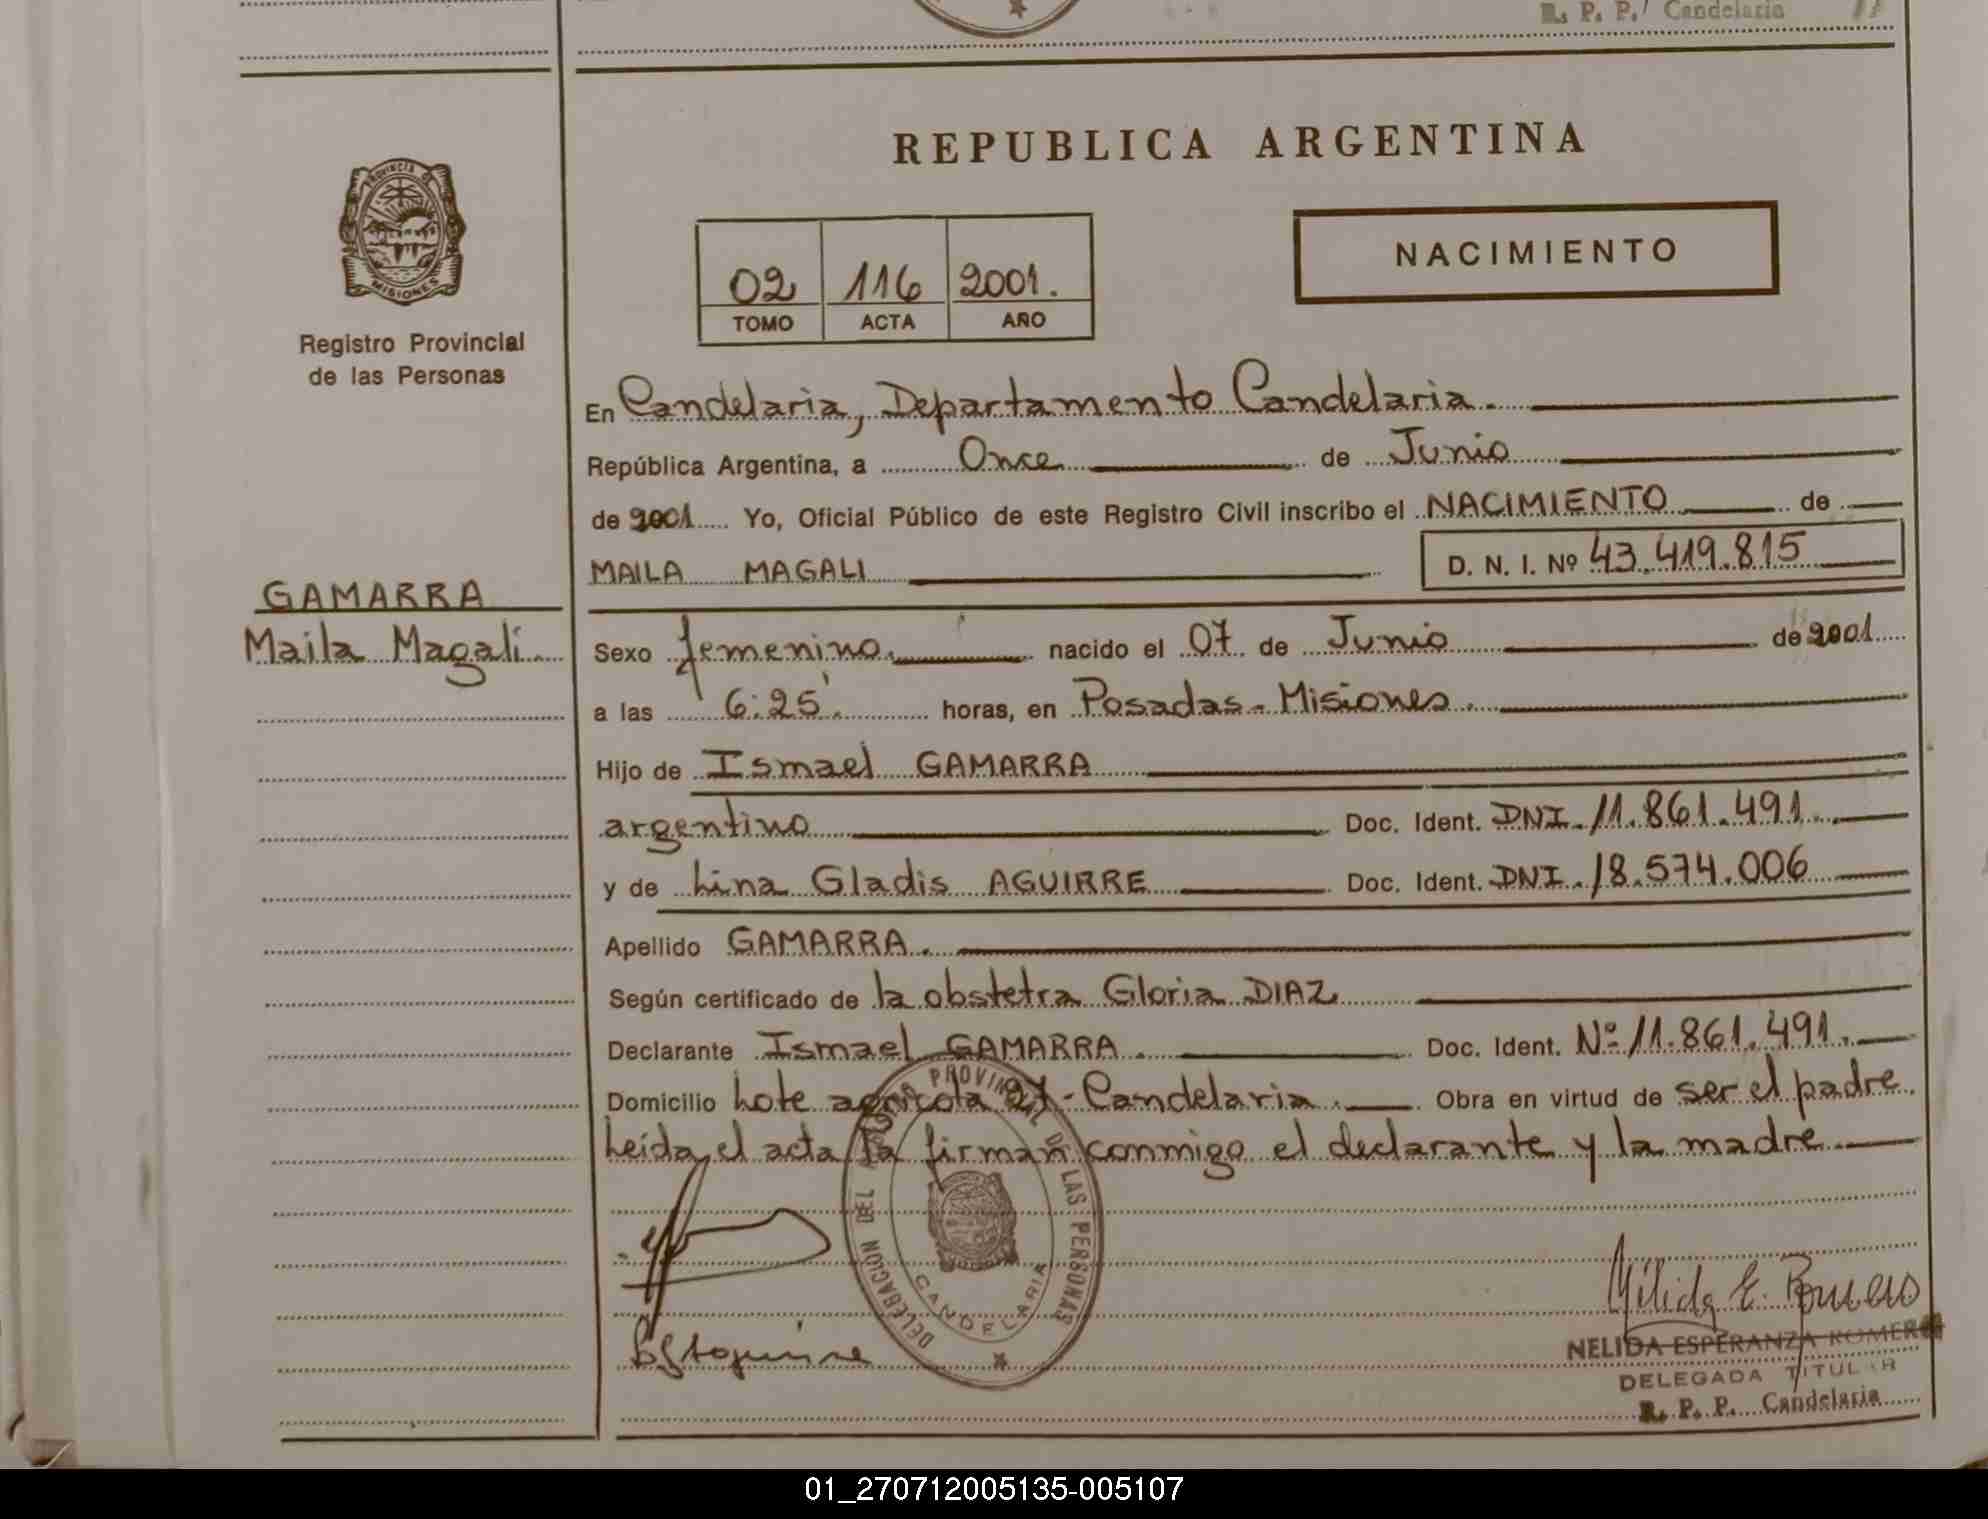 R. P. P. Candelaria
REPUBLICA ARGENTINA
PROVINCIA DE
MISIONES
Registro Provincial
de las Personas
02 116 2001.
TOMO ACTA AÑO
NACIMIENTO
En Candelaria, Departamento Candelaria.
República Argentina, a Once de Junio
de 2001 Yo, Oficial Público de este Registro Civil inscribo el NACIMIENTO de
MAILA MAGALI D. N. I. Nº 43.419.815
GAMARRA
Maila Magali.
Sexo femenino. nacido el 07 de Junio de 2001
a las 6:25'. horas, en Posadas - Misiones.
Hijo de Ismael GAMARRA
argentino Doc. Ident. DNI. 11.861.491.
y de Lina Gladis AGUIRRE Doc. Ident. DNI. 18.574.006
Apellido GAMARRA.
Según certificado de la obstetra Gloria DIAZ
Declarante Ismael GAMARRA. Doc. Ident. Nº 11.861.491.
Domicilio Lote agricola 27 - Candelaria. Obra en virtud de ser el padre.
Leida el acta la firman conmigo el declarante y la madre
DELEGACION DEL REGISTRO PROVINCIAL DE LAS PERSONAS
CANDELARIA
Nélida E. Romero
NELIDA ESPERANZA ROMERO
DELEGADA TITULAR
R. P. P. Candelaria
01_270712005135-005107